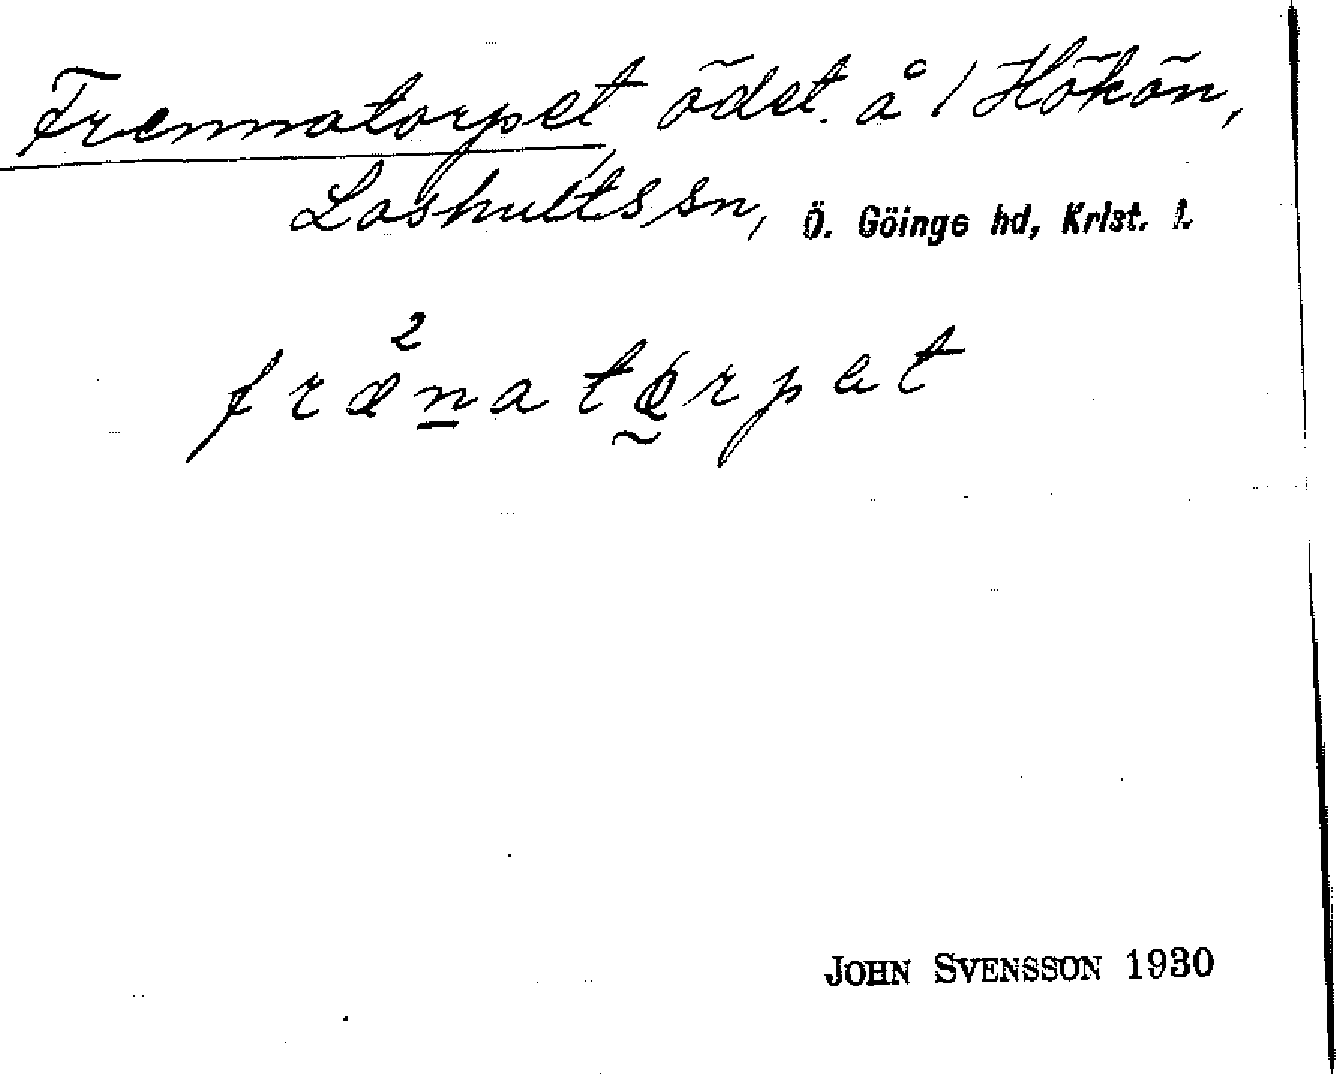 Frennatorpet, ödet. å 1 Hökön,
Loshults sn, Ö. Göinge hd, Krist. l.
2
frænatørpet
JOHN SVENSSON 1930